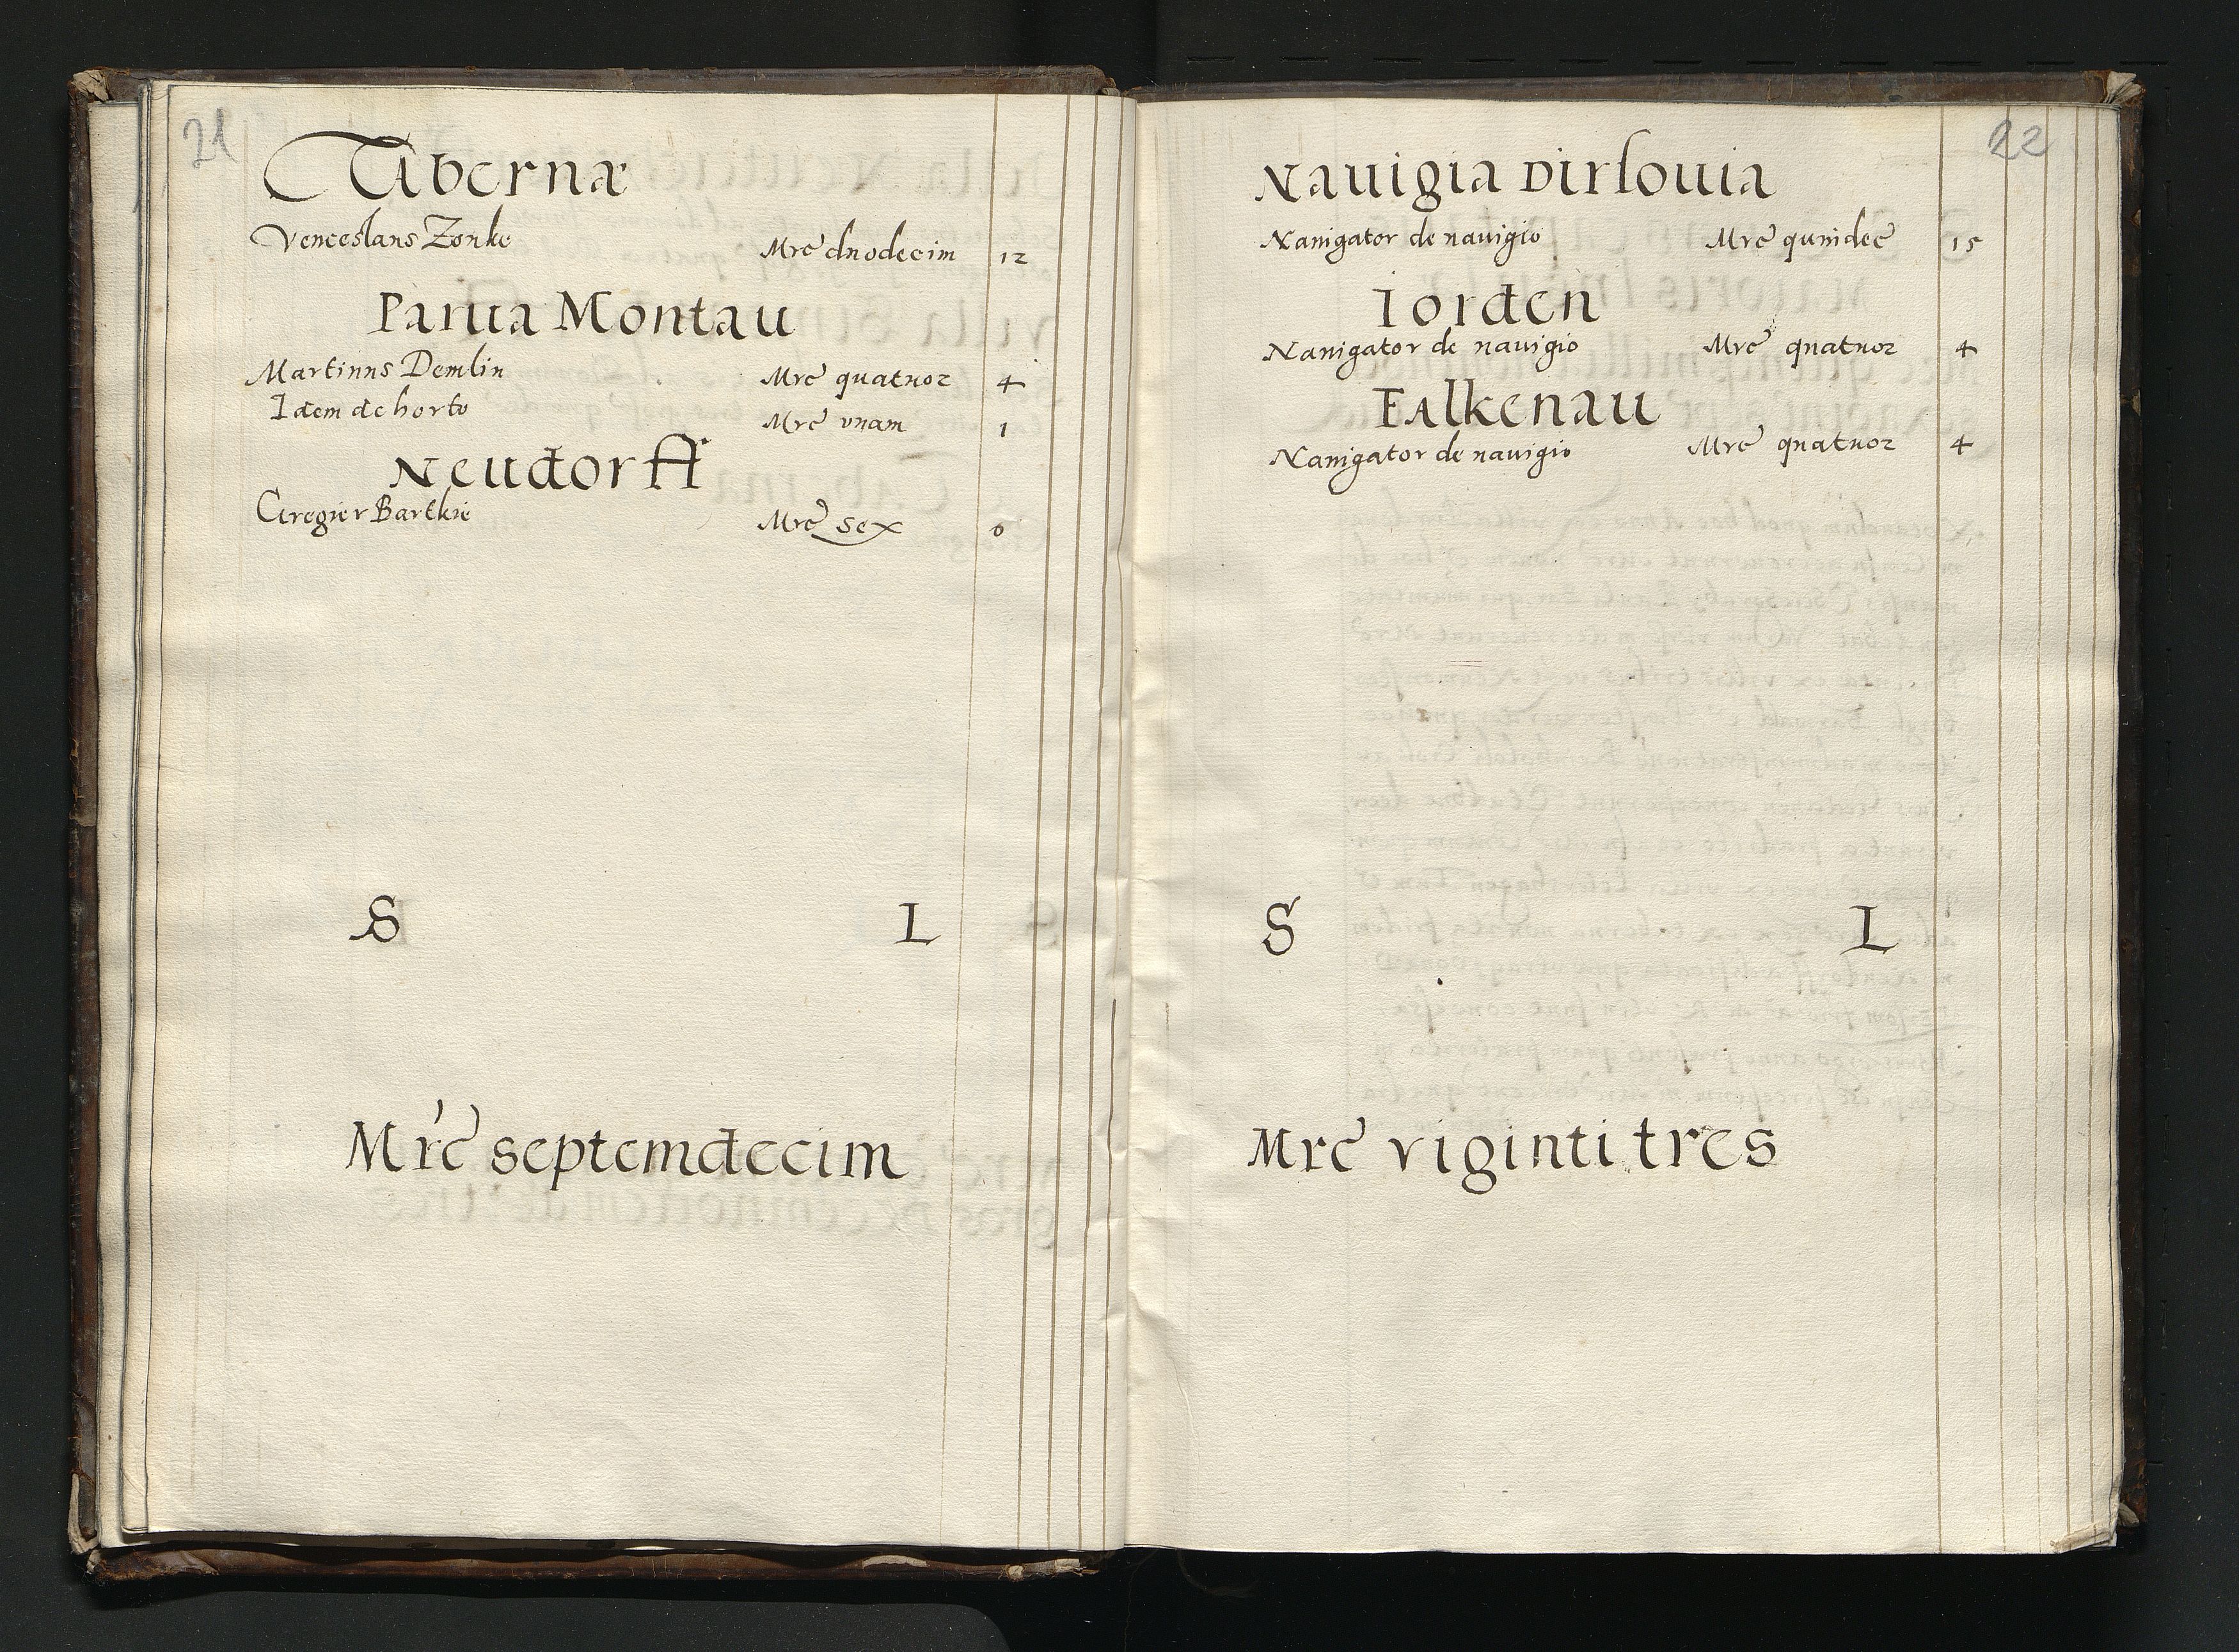 21
Tabernæ
Venceslaus Zonke Mrc duodecim 12
Parua Montau
Martinus Demlin Mrc quatuor 4
Idem de horto Mrc vnam 1
Neudorff
Gregier Bartkie Mrc sex 6
S L
Mrc septemdecim
22
Nauigia Dirsouia
Nauigator de nauigio Mrc quindec 15
Iorden
Nauigator de nauigio Mrc quatuor 4
Falkenau
Nauigator de nauigio Mrc quatuor 4
S L
Mrc viginti tres